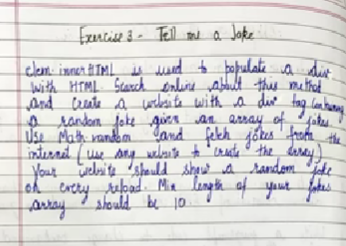 Exercise 3 - Tell me a Joke
elem.innerHTML is used to populate a div
with HTML. Search online about this method
and create a website with a div tag containing
a random joke given an array of jokes
Use Math.random and fetch jokes from the
internet (use any website to create the array)
Your website should show a random joke
on every reload. Min length of your jokes
array should be 10.